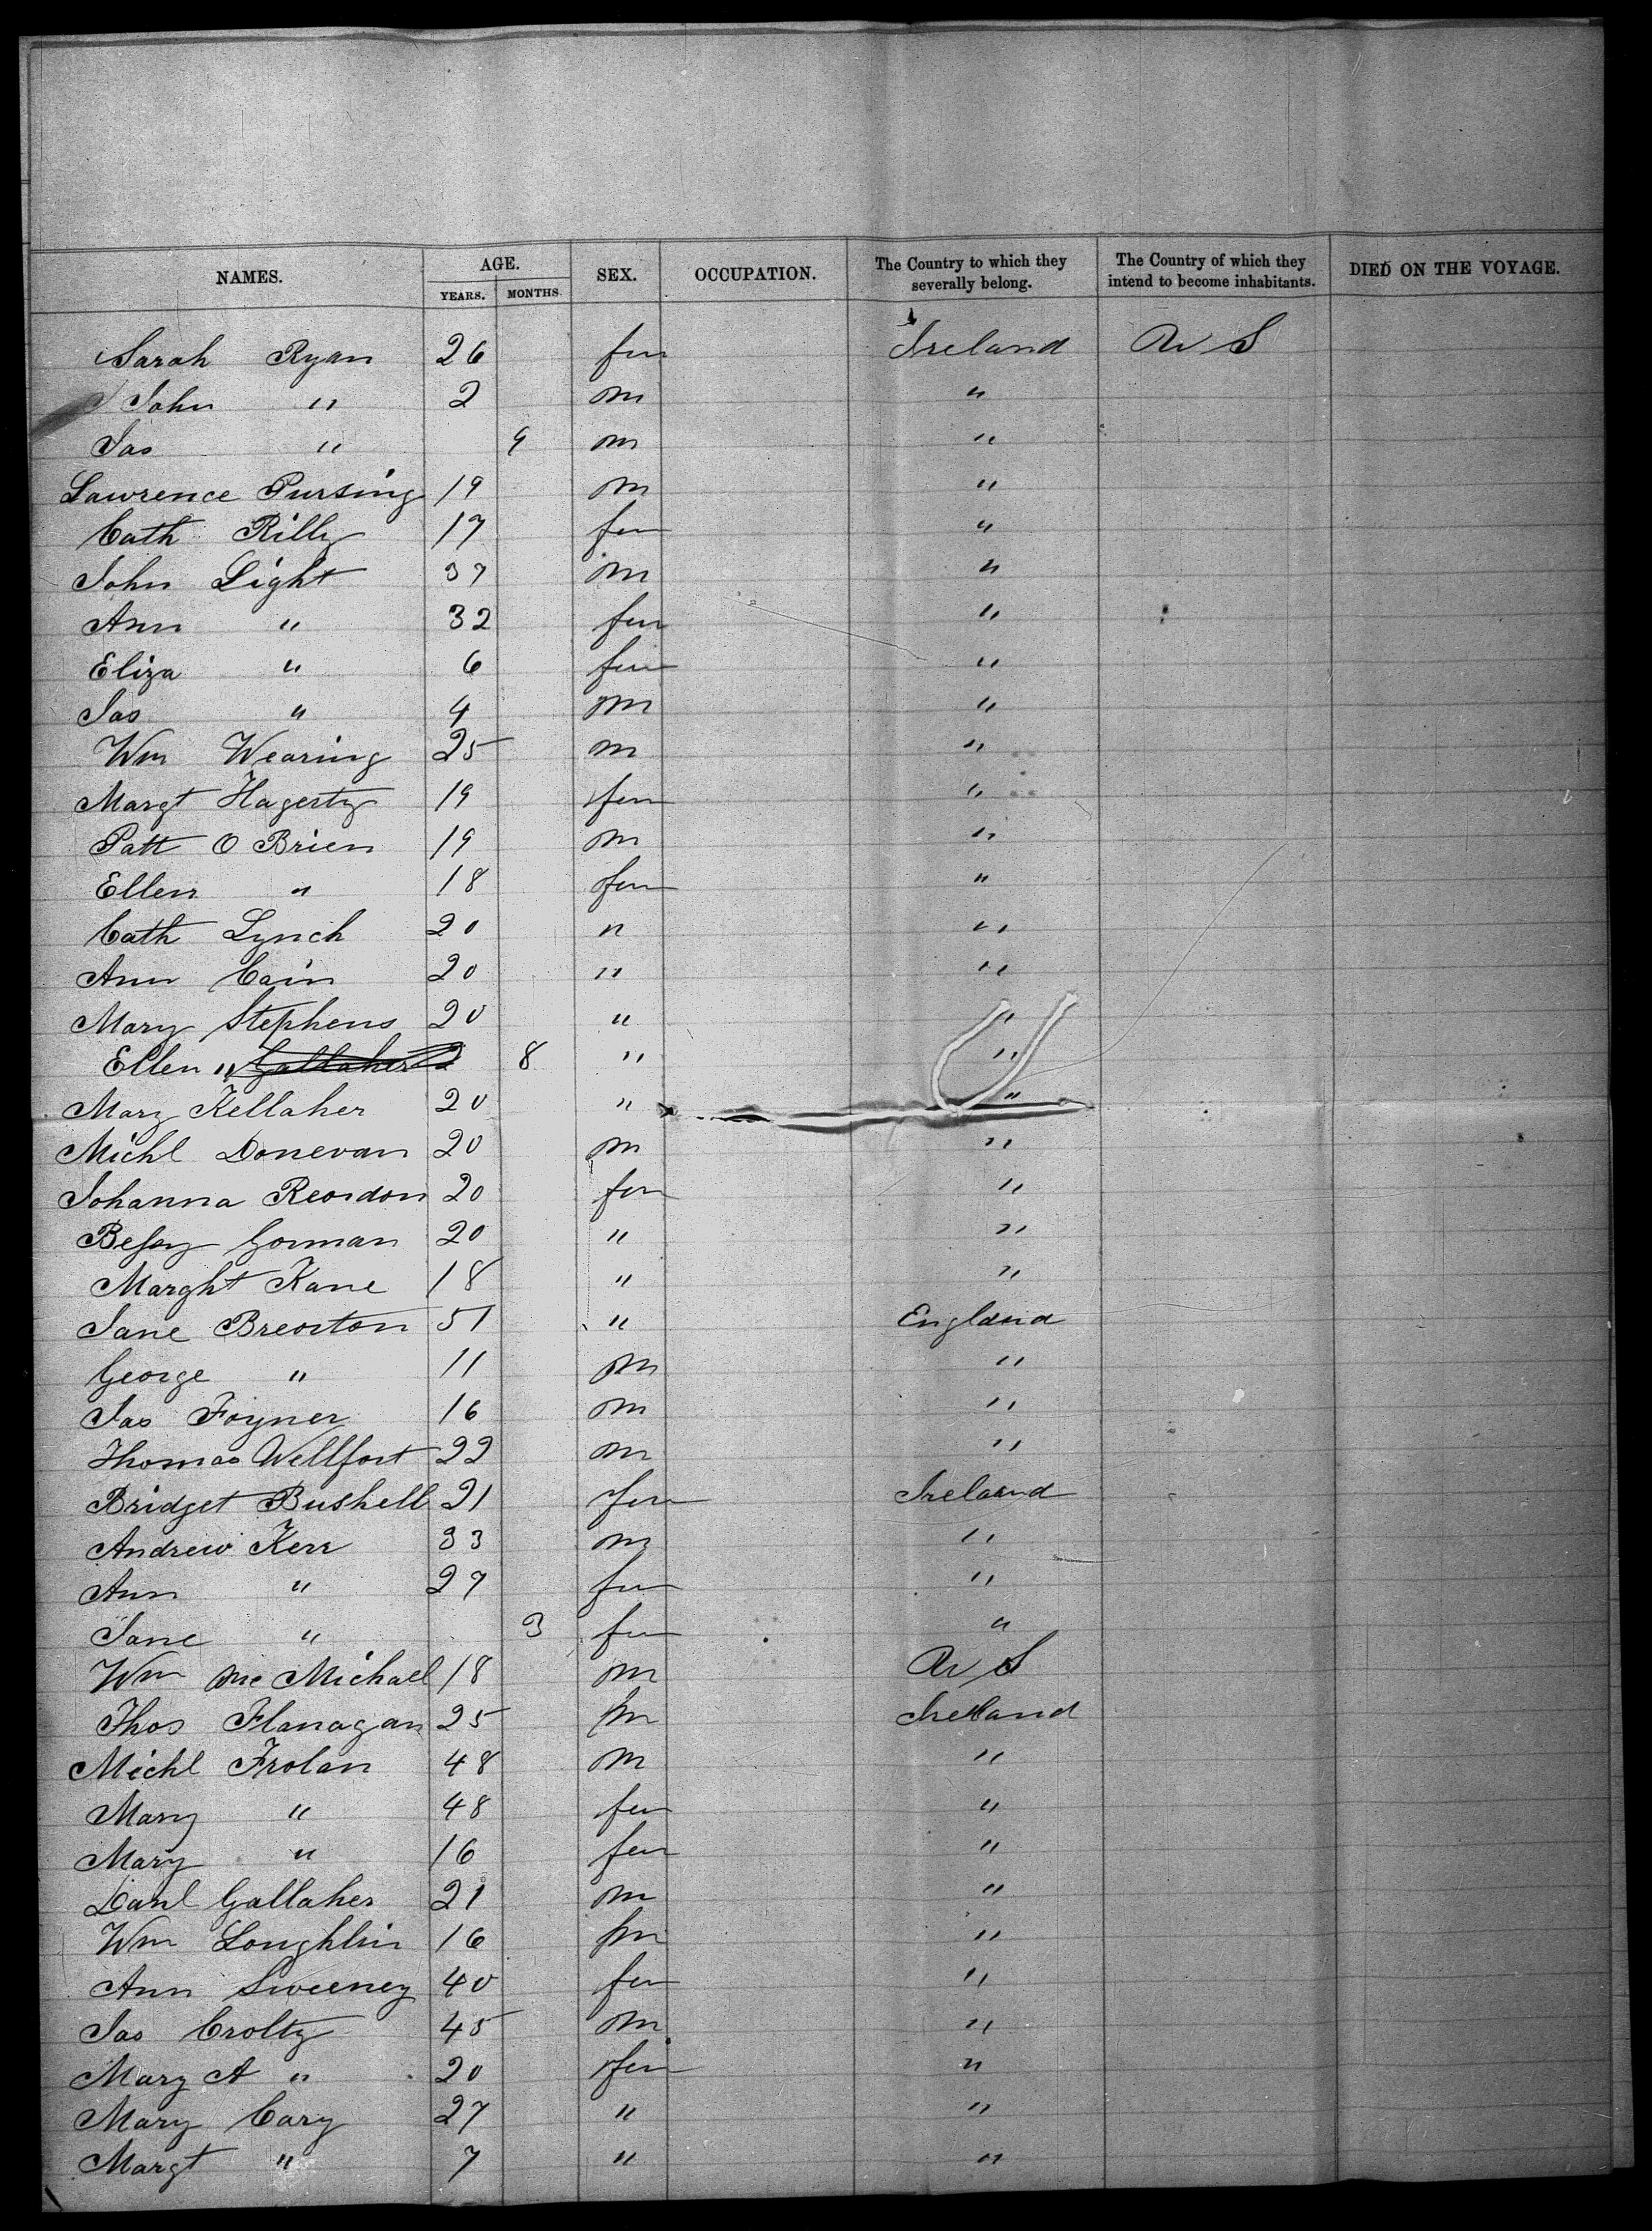 NAMES. AGE. SEX. OCCUPATION. The Country to which they severally belong. The Country of which they intend to become inhabitants. DIED ON THE VOYAGE.
YEARS. MONTHS.
Sarah Ryan 26 fem Ireland U S
John " 2 m "
Jas " 9 m "
Lawrence Pursing 19 m "
Cath Rilly 17 fem "
John Light 37 m "
Ann " 32 fem "
Eliza " 6 fem "
Jas " 4 m "
Wm Wearing 25 m "
Margt Hagerty 19 fem "
Patt O Brien 19 m "
Ellen " 18 fem "
Cath Lynch 20 " "
Ann Cain 20 " "
Mary Stephens 20 " "
Ellen " Gallaher 8 " "
Mary Kellaher 20 " "
Michl Donevan 20 m "
Johanna Reordon 20 fem "
Bessy Gorman 20 " "
Marght Kane 18 " "
Jane Brereton 51 " England
George " 11 m "
Jas Foyner 16 m "
Thomas Wellfort 22 m "
Bridget Bushell 21 fem Ireland
Andrew Kerr 33 m "
Ann " 27 fem "
Jane " 3 fem "
Wm Mc Michael 18 m U S
Thos Flanagan 25 m Ireland
Michl Frolan 48 m "
Mary " 48 fem "
Mary " 16 fem "
Danl Gallaher 21 m "
Wm Loughlin 16 m "
Ann Sweeney 40 fem "
Jas Crolty 45 m "
Mary A " 20 fem "
Mary Cary 27 " "
Margt " 7 " "